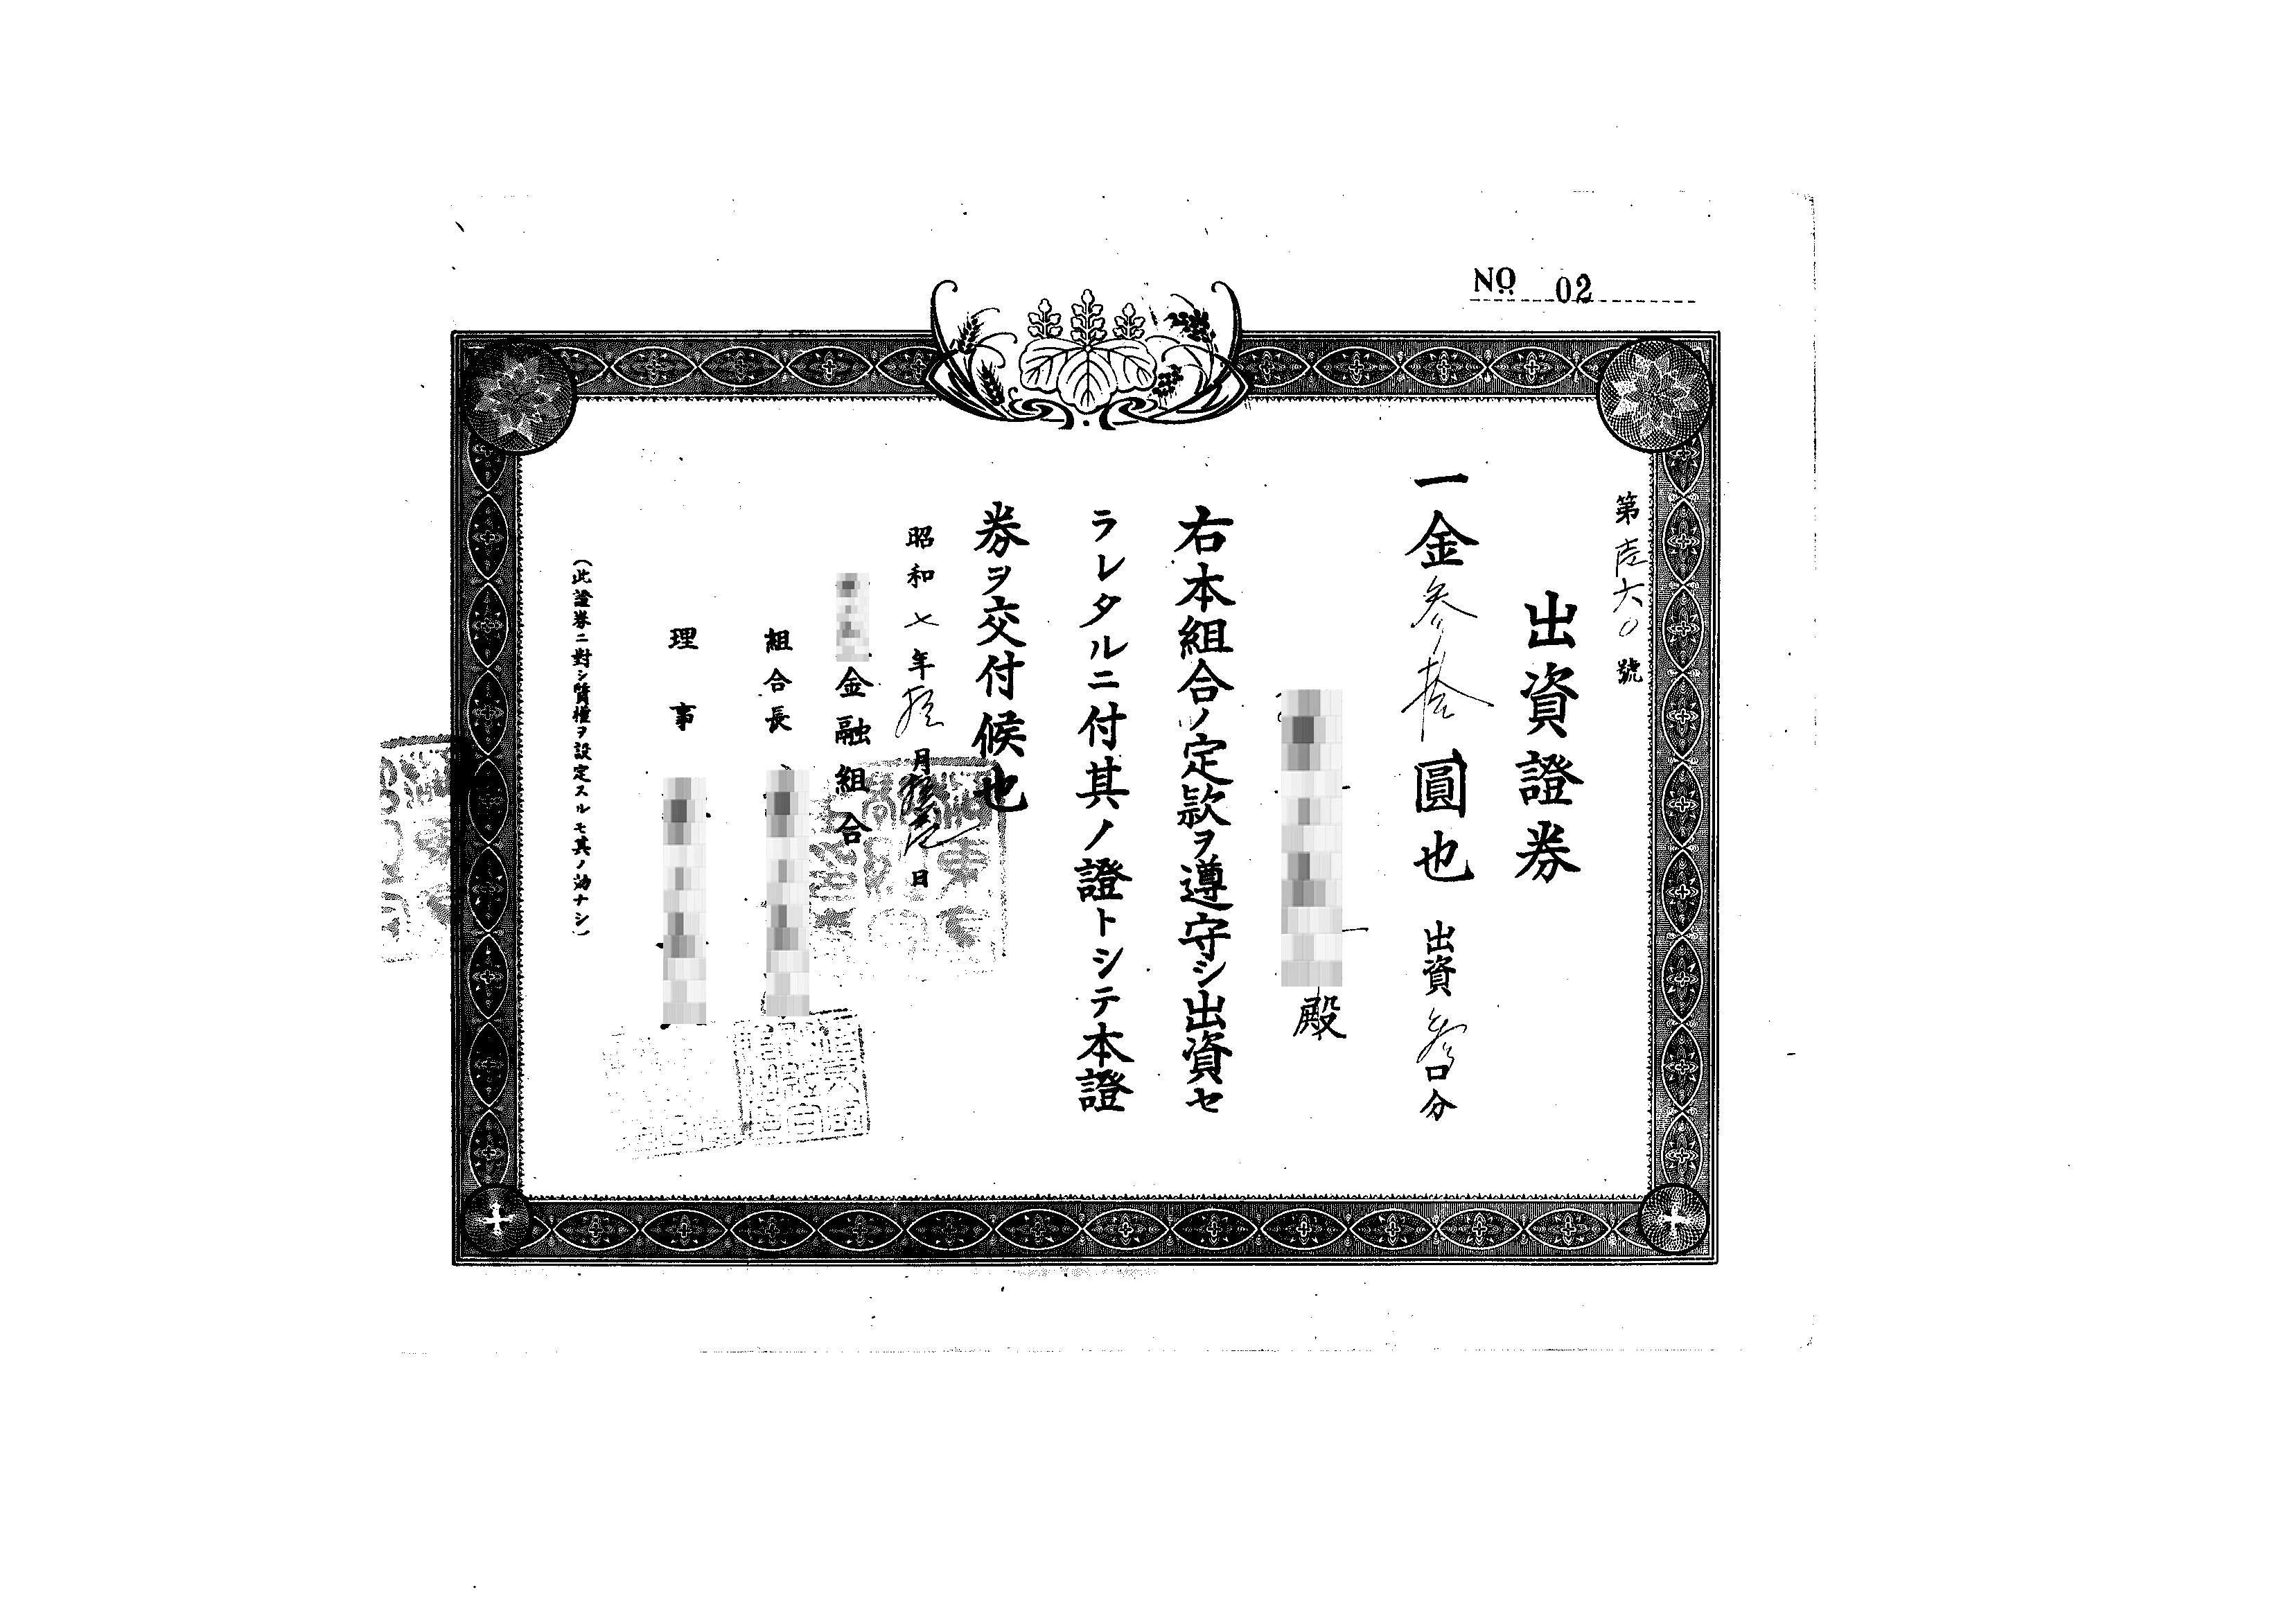 NO. 02
第壱六〇號
出資證券
一金参拾圓也 出資参口分
殿
右本組合ノ定款ヲ遵守シ出資セ
ラレタルニ付其ノ證トシテ本證
券ヲ交付候也
昭和七年拾月拾壱日
金融組合
組合長
理事
(此證券ニ對シ質權ヲ設定スルモ其ノ効ナシ)